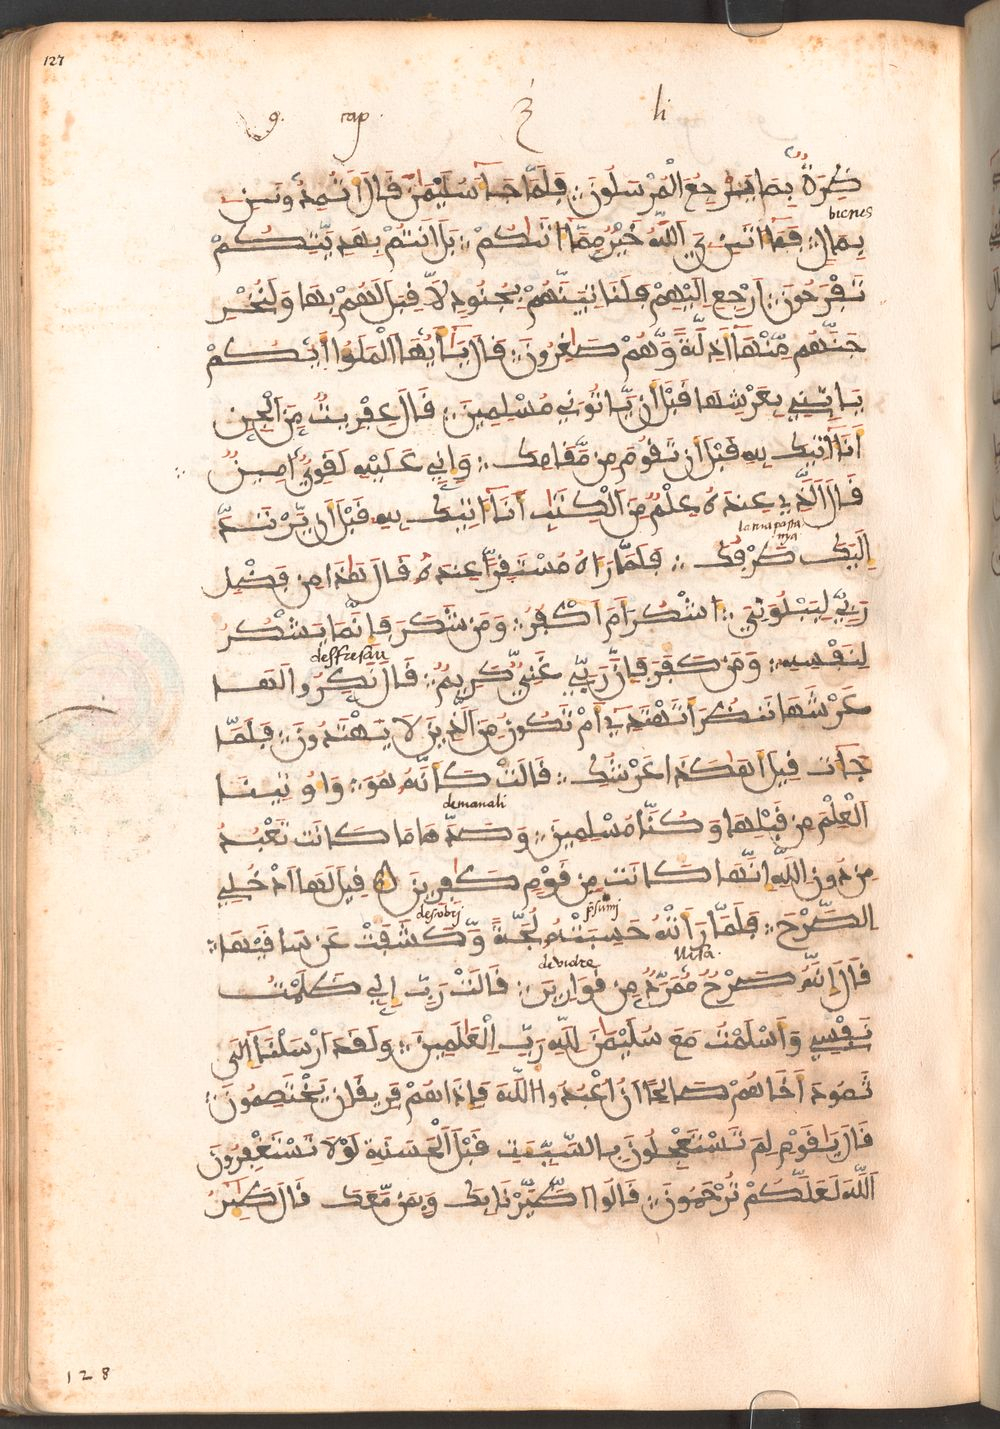 127
9. cap. 3 li
ظِرَةٌ بِمَا يَرْجِعُ الْمُرْسَلُونَ فَلَمَّا جَاءَ سُلَيْمَٰنَ قَالَ أَتُمِدُّونَنِ
bienes
بِمَالٍ فَمَا ءَاتَىٰنِ اللَّهُ خَيْرٌ مِمَّا ءَاتَىٰكُمْ بَلْ أَنتُمْ بِهَدِيَّتِكُمْ
تَفْرَحُونَ ارْجِعْ إِلَيْهِمْ فَلَنَأْتِيَنَّهُمْ بِجُنُودٍ لَّا قِبَلَ لَهُمْ بِهَا وَلَنُخْرِ
جَنَّهُم مِّنْهَا أَذِلَّةً وَهُمْ صَٰغِرُونَ قَالَ يَٰأَيُّهَا الْمَلَؤُا أَيُّكُمْ
يَاتِينِي بِعَرْشِهَا قَبْلَ أَن يَّاتُونِي مُسْلِمِينَ قَالَ عِفْرِيتٌ مِّنَ الْجِنِّ
أَنَا ءَاتِيكَ بِهِ قَبْلَ أَن تَقُومَ مِن مَّقَامِكَ وَإِنِّي عَلَيْهِ لَقَوِيٌّ أَمِينٌ
قَالَ الَّذِي عِندَهُ عِلْمٌ مِّنَ الْكِتَٰبِ أَنَا ءَاتِيكَ بِهِ قَبْلَ أَن يَّرْتَدَّ
la tua pesta
nya
إِلَيْكَ طَرْفُكَ فَلَمَّا رَءَاهُ مُسْتَقِرًّا عِندَهُ قَالَ هَٰذَا مِن فَضْلِ
رَبِّي لِيَبْلُوَنِي ءَاشْكُرُ أَمْ أَكْفُرُ وَمَن شَكَرَ فَإِنَّمَا يَشْكُرُ
desfresau
لِنَفْسِهِ وَمَن كَفَرَ فَإِنَّ رَبِّي غَنِيٌّ كَرِيمٌ قَالَ نَكِّرُوا لَهَا
عَرْشَهَا نَنظُرَ أَتَهْتَدِي أَمْ تَكُونُ مِنَ الَّذِينَ لَا يَهْتَدُونَ فَلَمَّا
جَاءَتْ قِيلَ أَهَٰكَذَا عَرْشُكِ قَالَتْ كَأَنَّهُ هُوَ وَأُوتِينَا
demanali
الْعِلْمَ مِن قَبْلِهَا وَكُنَّا مُسْلِمِينَ وَصَدَّهَا مَا كَانَت تَّعْبُدُ
مِن دُونِ اللَّهِ إِنَّهَا كَانَتْ مِن قَوْمٍ كَٰفِرِينَ قِيلَ لَهَا ادْخُلِي
desobrj psumj
الصَّرْحَ فَلَمَّا رَأَتْهُ حَسِبَتْهُ لُجَّةً وَكَشَفَتْ عَن سَاقَيْهَا
de vidre llisa.
قَالَ إِنَّهُ صَرْحٌ مُّمَرَّدٌ مِّن قَوَارِيرَ قَالَتْ رَبِّ إِنِّي ظَلَمْتُ
نَفْسِي وَأَسْلَمْتُ مَعَ سُلَيْمَٰنَ لِلَّهِ رَبِّ الْعَٰلَمِينَ وَلَقَدْ أَرْسَلْنَا إِلَىٰ
ثَمُودَ أَخَاهُمْ صَٰلِحًا أَنُ اعْبُدُوا اللَّهَ فَإِذَا هُمْ فَرِيقَانِ يَخْتَصِمُونَ
قَالَ يَٰقَوْمِ لِمَ تَسْتَعْجِلُونَ بِالسَّيِّئَةِ قَبْلَ الْحَسَنَةِ لَوْلَا تَسْتَغْفِرُونَ
اللَّهَ لَعَلَّكُمْ تُرْحَمُونَ قَالُوا اطَّيَّرْنَا بِكَ وَبِمَن مَّعَكَ قَالَ طَٰئِرُ
128